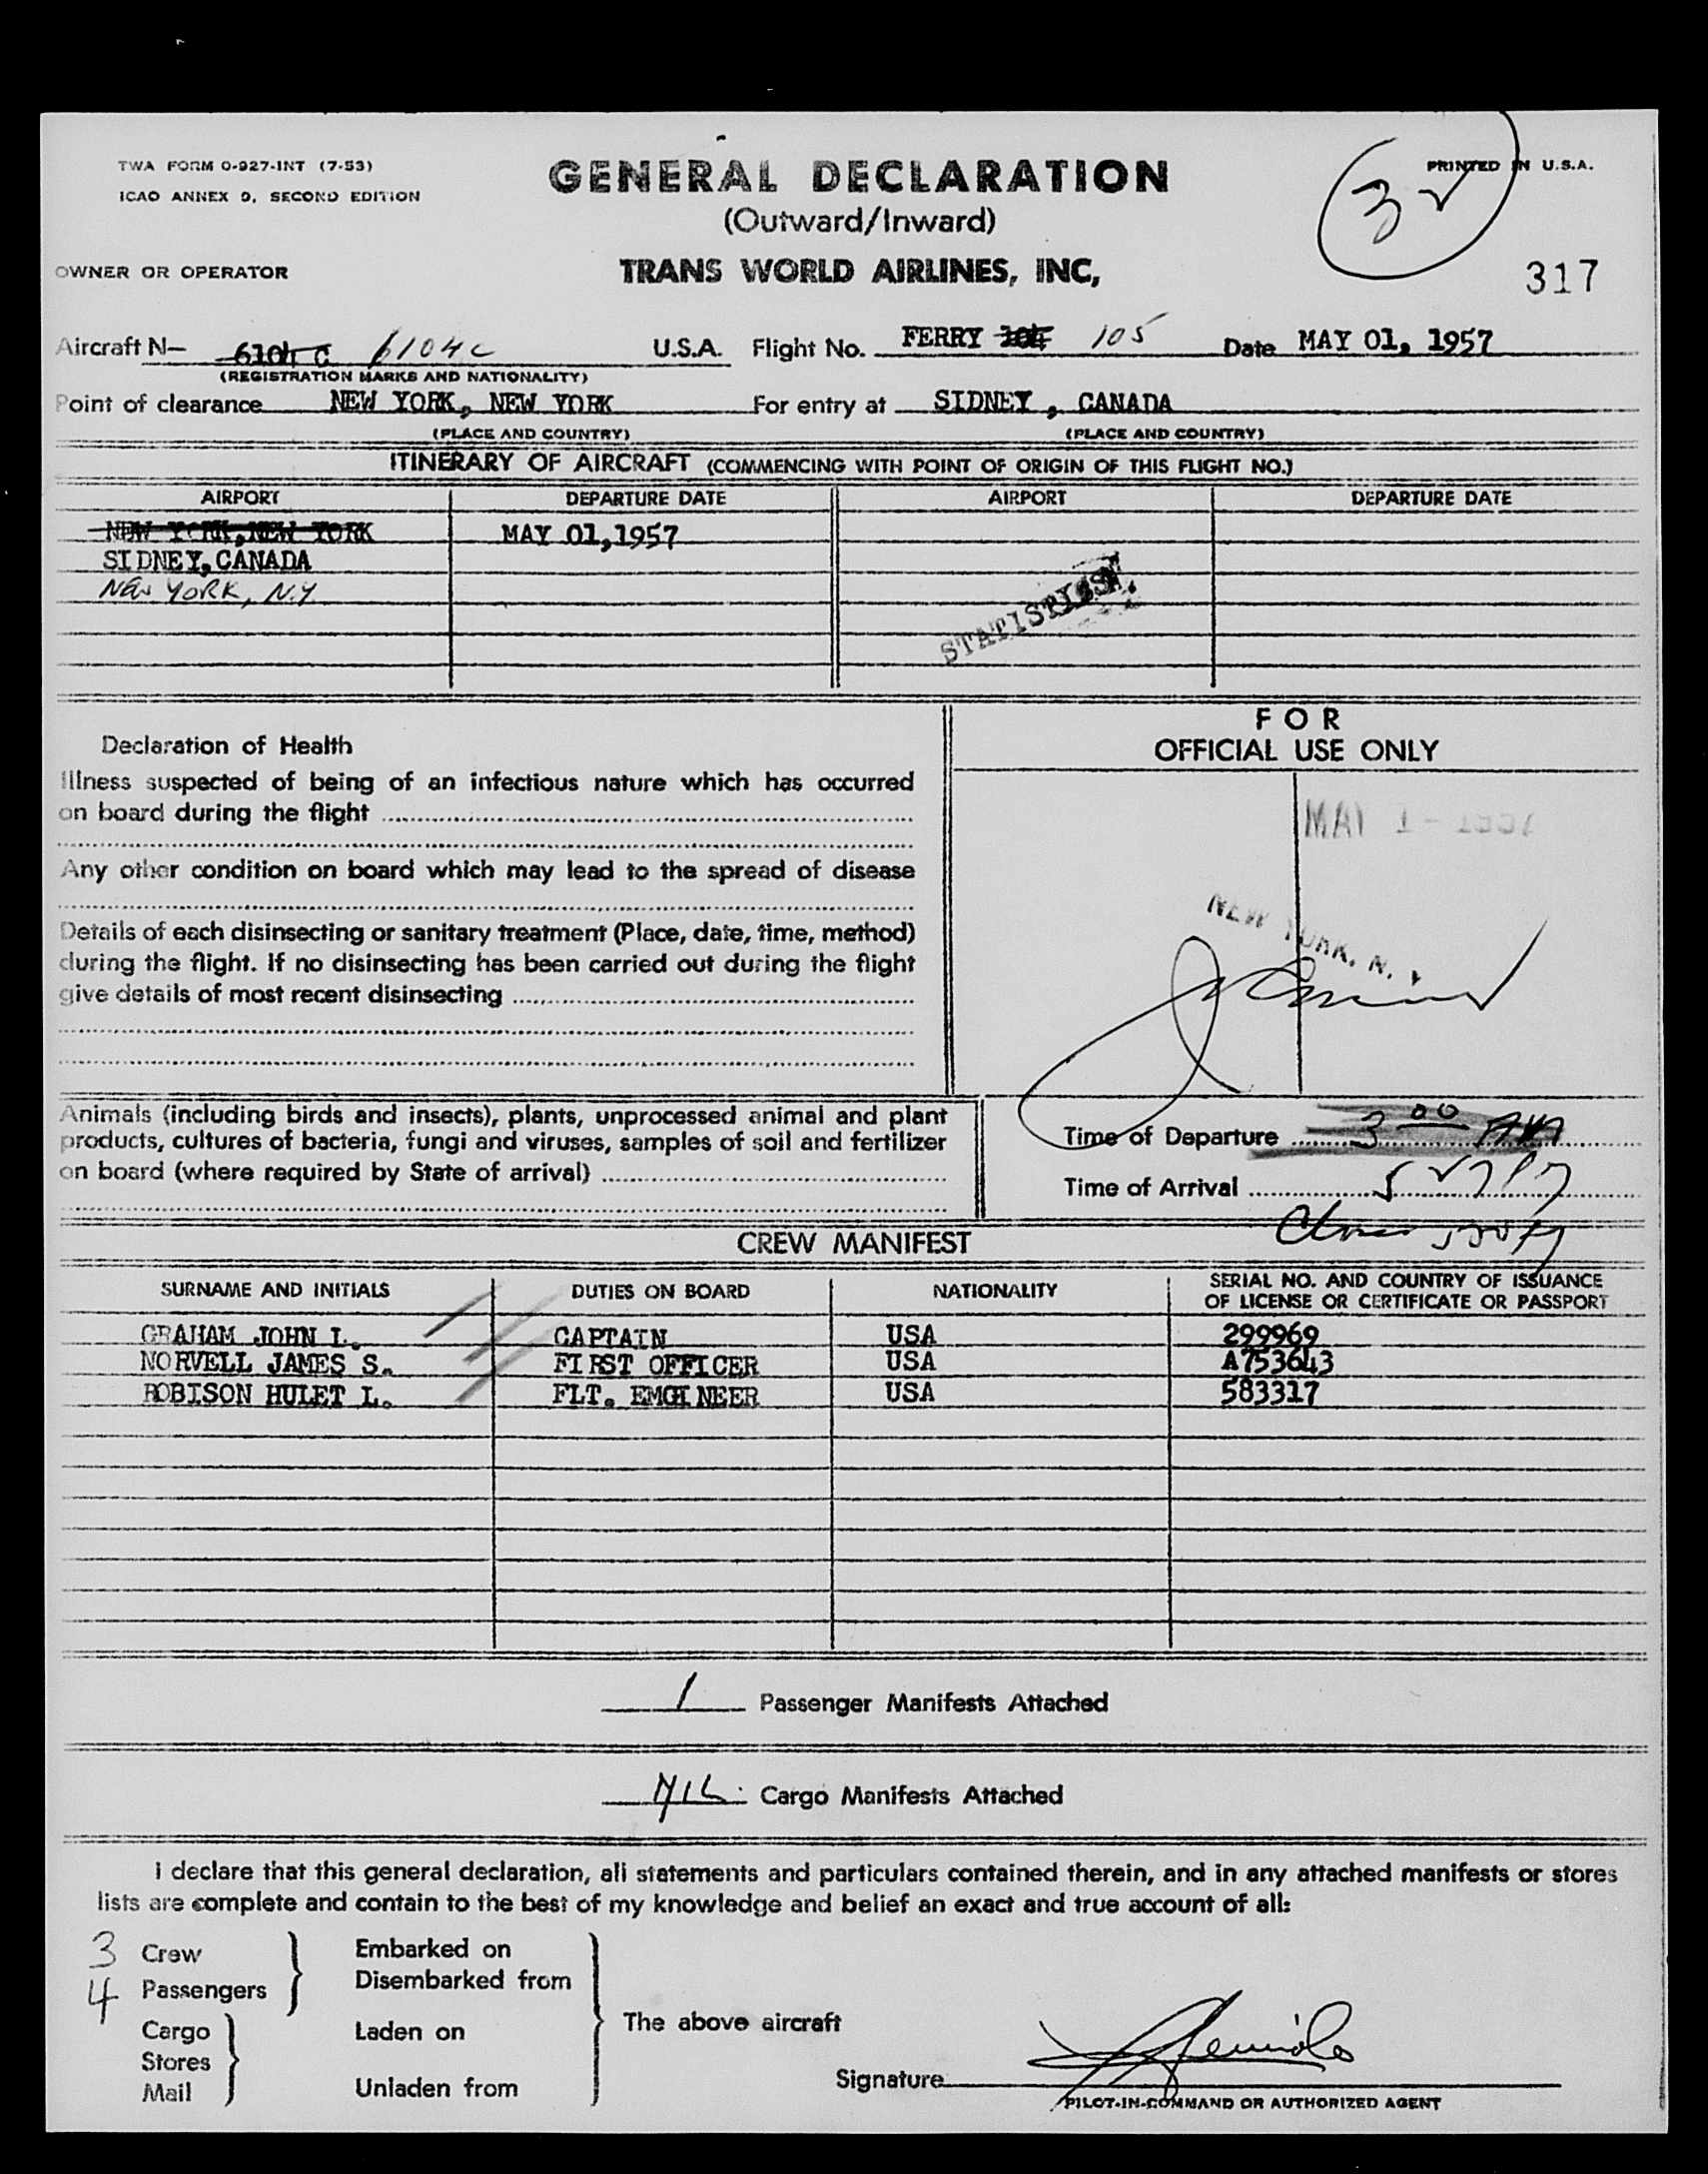 TWA FORM O-927-INT (7-53)
ICAO ANNEX 9, SECOND EDITION
GENERAL DECLARATION
(Outward/Inward)
PRINTED IN U.S.A.
32
OWNER OR OPERATOR
TRANS WORLD AIRLINES, INC,
317
Aircraft N- 6104 C 6104C U.S.A. Flight No. FERRY 104 105 Date MAY 01, 1957
(REGISTRATION MARKS AND NATIONALITY)
Point of clearance NEW YORK, NEW YORK For entry at SIDNEY , CANADA
(PLACE AND COUNTRY) (PLACE AND COUNTRY)
ITINERARY OF AIRCRAFT (COMMENCING WITH POINT OF ORIGIN OF THIS FLIGHT NO.)
AIRPORT DEPARTURE DATE AIRPORT DEPARTURE DATE
NEW YORK, NEW YORK MAY 01,1957
SIDNEY, CANADA
NEW YORK, N.Y.
FOR
OFFICIAL USE ONLY
Declaration of Health
Illness suspected of being of an infectious nature which has occurred
on board during the flight
MAY 1 -
Any other condition on board which may lead to the spread of disease
NEW YORK, N. Y
Details of each disinsecting or sanitary treatment (Place, date, time, method)
during the flight. If no disinsecting has been carried out during the flight
give details of most recent disinsecting
Animals (including birds and insects), plants, unprocessed animal and plant
products, cultures of bacteria, fungi and viruses, samples of soil and fertilizer
on board (where required by State of arrival)
Time of Departure 3 00
Time of Arrival 527 PM
CREW MANIFEST
SURNAME AND INITIALS DUTIES ON BOARD NATIONALITY SERIAL NO. AND COUNTRY OF ISSUANCE
OF LICENSE OR CERTIFICATE OR PASSPORT
GRAHAM JOHN I. CAPTAIN USA 299969
NORVELL JAMES S. FIRST OFFICER USA A753643
ROBISON HULET L. FLT. EMGINEER USA 583317
1 Passenger Manifests Attached
NIL Cargo Manifests Attached
I declare that this general declaration, all statements and particulars contained therein, and in any attached manifests or stores
lists are complete and contain to the best of my knowledge and belief an exact and true account of all:
3 Crew
4 Passengers
Embarked on
Disembarked from
Cargo
Stores
Mail
Laden on
Unladen from
The above aircraft
Signature
PILOT-IN-COMMAND OR AUTHORIZED AGENT